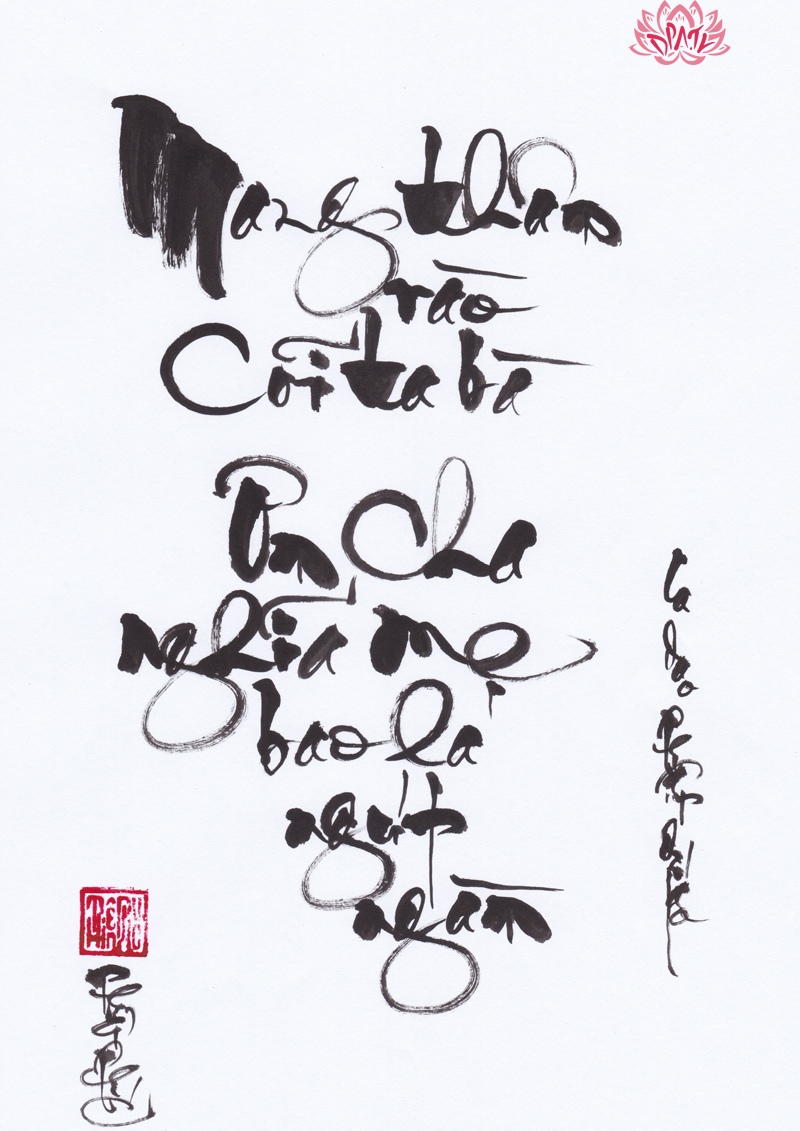 Mang thân
vào
Cõi ta bà
Ơn Cha
nghĩa mẹ
bao la
ngút
ngàn
Ca dao
DPATL